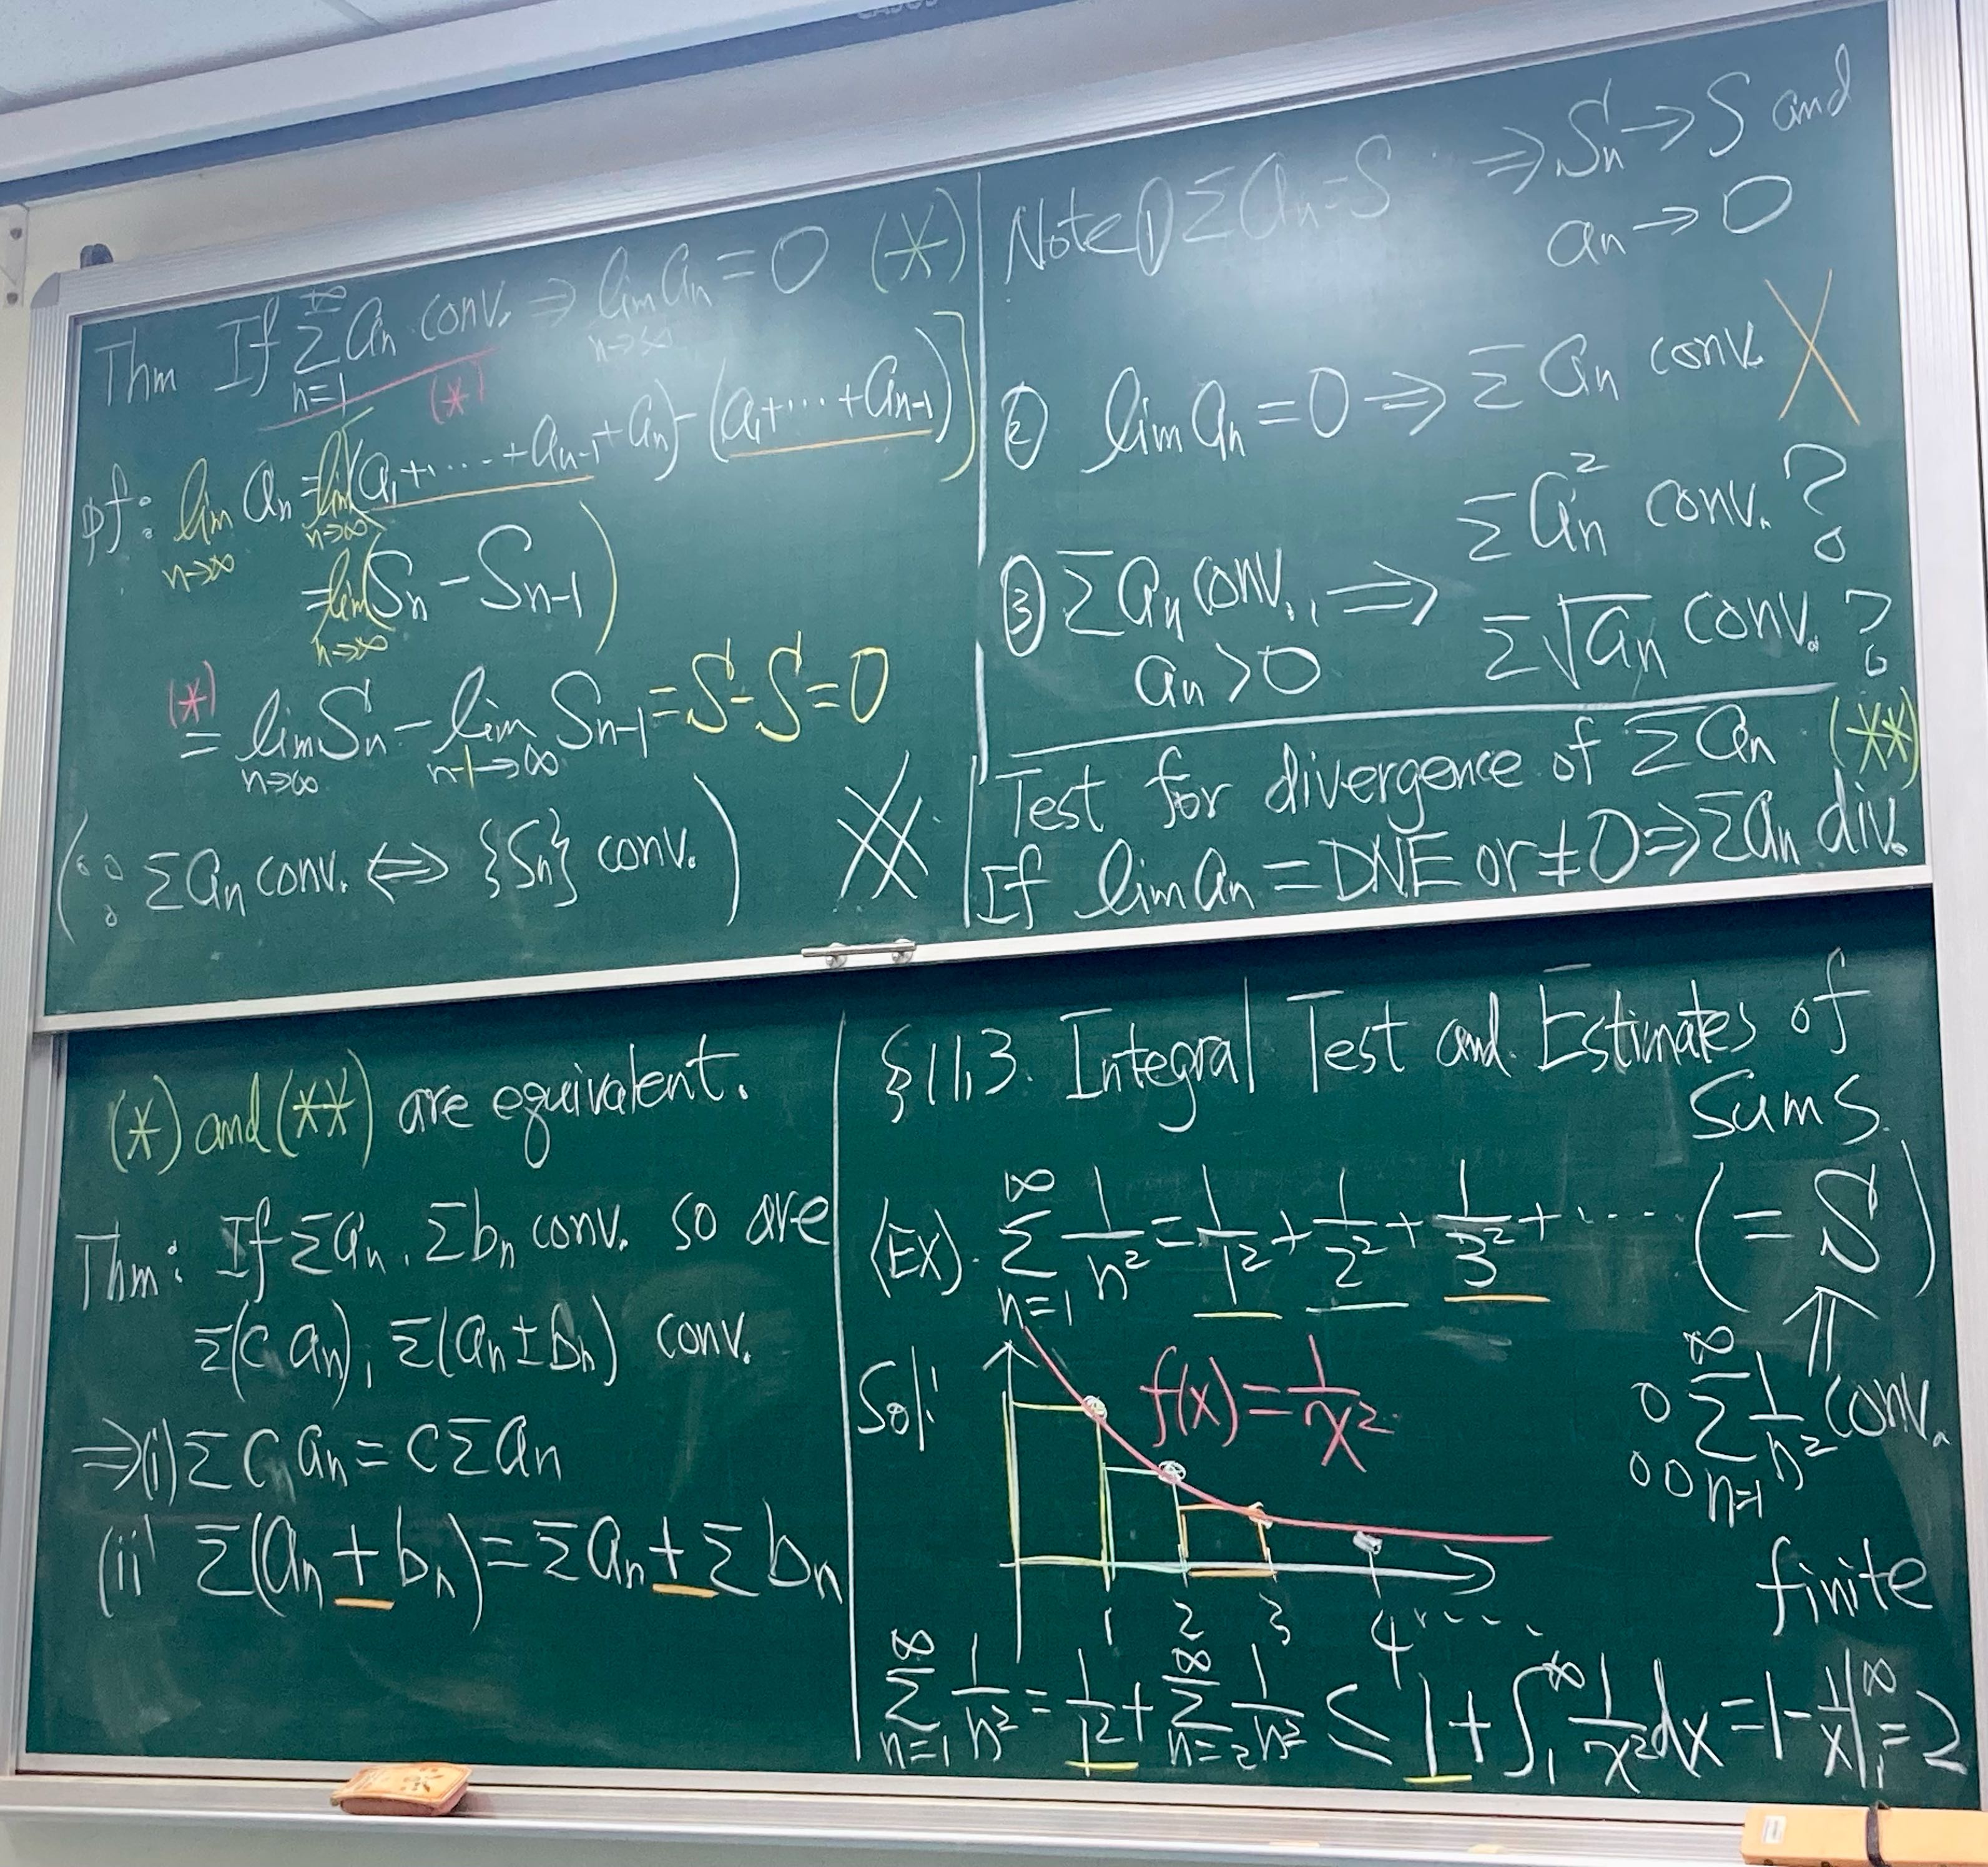 Thm If ∑_{n=1}^{∞} aₙ conv. ⇒ lim_{n→∞} aₙ = 0 (*)
(*)
pf: lim_{n→∞} aₙ = lim_{n→∞} [(a₁+····+aₙ₋₁+aₙ) - (a₁+···+aₙ₋₁)]
= lim_{n→∞} (Sₙ - Sₙ₋₁)
(*) = lim_{n→∞} Sₙ - lim_{n-1→∞} Sₙ₋₁ = S - S = 0
(∵ ∑aₙ conv. ⇔ {Sₙ} conv.)
Note ① ∑aₙ = S ⇒ Sₙ → S and
aₙ → 0
② lim aₙ = 0 ⇒ ∑aₙ conv. X
③ ∑aₙ conv., aₙ > 0 ⇒ ∑aₙ² conv. ?
∑√aₙ conv. ?
Test for divergence of ∑aₙ (**)
If lim aₙ = DNE or ≠ 0 ⇒ ∑aₙ div.
(*) and (**) are equivalent.
Thm: If ∑aₙ, ∑bₙ conv. so are
∑(c aₙ), ∑(aₙ ± bₙ) conv.
⇒ (i) ∑ c aₙ = c∑aₙ
(ii) ∑(aₙ ± bₙ) = ∑aₙ ± ∑bₙ
§11.3. Integral Test and Estimates of
Sums
(Ex). ∑_{n=1}^{∞} 1/n² = 1/1² + 1/2² + 1/3² + ····· (= S)
⇑
Sol:
f(x) = 1/x²
∴ ∑_{n=1}^{∞} 1/n² conv.
1 2 3 4 ····
finite
∑_{n=1}^{∞} 1/n² = 1/1² + ∑_{n=2}^{∞} 1/n² ≤ 1 + ∫₁^∞ 1/x² dx = 1 - 1/x |₁^∞ = 2